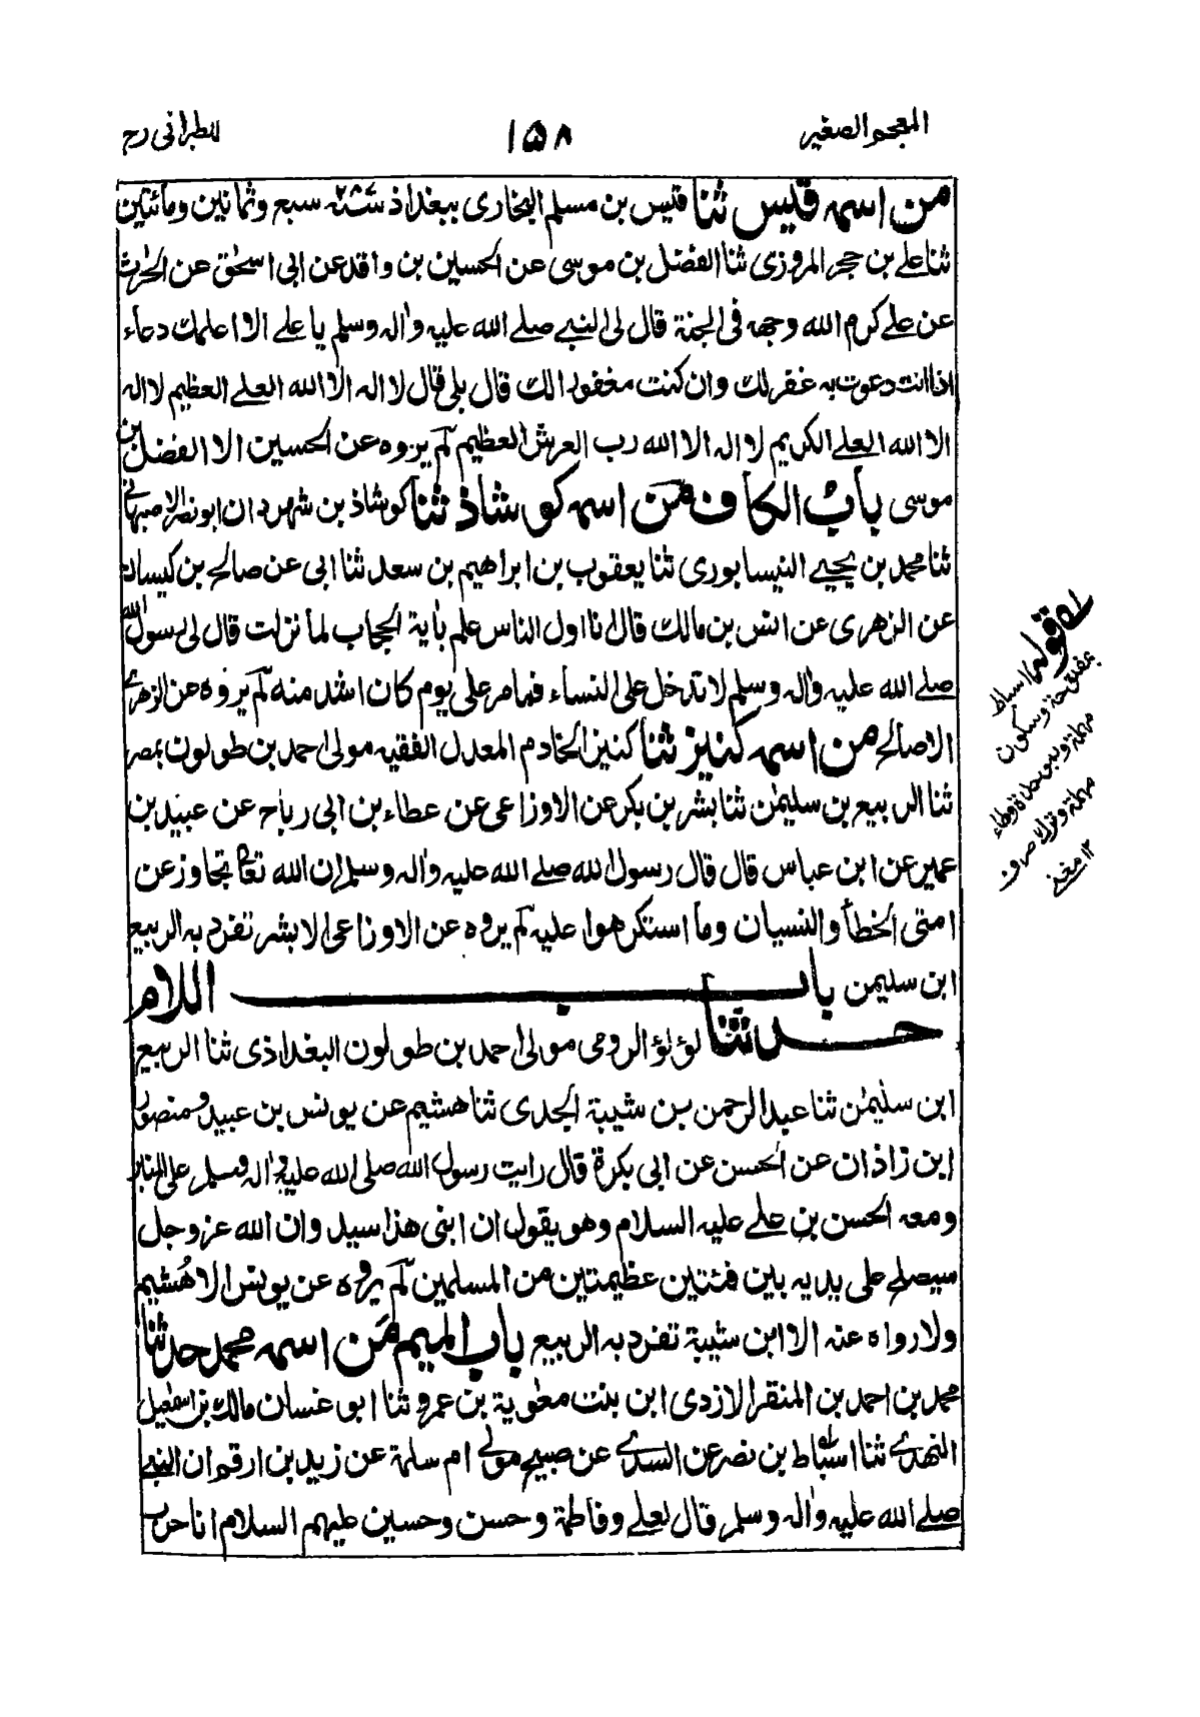 المعجم الصغير
١٥٨
للطبرانى رح
من اسمه قيس ثنا قيس بن مسلم البخارى ببغداد سنة ٢٨٧ سبع وثمانين ومائتين
ثنا على بن حجر المروزى ثنا الفضل بن موسى عن الحسين بن واقد عن ابى اسحٰق عن الحٰرث
عن على كرم الله وجهه فى الجنة قال لى النبى صلى الله عليه واٰله وسلم يا على الا اعلمك دعاء
اذا انت دعوت به غفر لك وان كنت مغفورا لك قال بلى قال لا اله الا الله العلى العظيم لا اله
الا الله العلى الكريم لا اله الا الله رب العرش العظيم لم يروه عن الحسين الا الفضل بن
موسى باب الكاف من اسمه كوشاذ ثنا كوشاذ بن شهردان ابو نصر الاصبهانى
ثنا محمد بن يحيى النيسابورى ثنا يعقوب بن ابراهيم بن سعد ثنا ابى عن صالح بن كيسان
عن الزهرى عن انس بن مالك قال انا اول الناس علم باية الحجاب لما نزلت قال لى رسول الله
صلى الله عليه واٰله وسلم لا تدخل على النساء فما مر على يوم كان اشد منه لم يروه عن الزهرى
الا صالح من اسمه كنيز ثنا كنيز الخادم المعدل الفقيه مولى احمد بن طولون بمصر
ثنا الربيع بن سليمٰن ثنا بشر بن بكر عن الاوزاعى عن عطاء بن ابى رباح عن عبيد بن
عمير عن ابن عباس قال قال رسول الله صلى الله عليه واٰله وسلم ان الله تعالى تجاوز عن
امتى الخطأ والنسيان وما استكرهوا عليه لم يروه عن الاوزاعى الا بشر تفرد به الربيع
ابن سليمن باب اللام
حدثنا لؤلؤ الرومى مولى احمد بن طولون البغداذى ثنا الربيع
ابن سليمٰن ثنا عبد الرحمن بن شيبة الجدى ثنا هشيم عن يونس بن عبيد ومنصور
ابن زاذان عن الحسن عن ابى بكرة قال رايت رسول الله صلى الله عليه واٰله وسلم على المنبر
ومعه الحسن بن على عليه السلام وهو يقول ان ابنى هذا سيد وان الله عز وجل
سيصلح على يديه بين فئتين عظيمتين من المسلمين لم يروه عن يونس الا هُشيم
ولا رواه عنه الا ابن شيبة تفرد به الربيع باب الميم من اسمه محمد حدثنا
محمد بن احمد بن المنقر الازدى ابن بنت معٰوية بن عمرو ثنا ابو غسان مالك بن اسمٰعيل
النهدى ثنا اسباط بن نصر عن السدى عن صبيح مولى ام سلمة عن زيد بن ارقم ان النبى
صلى الله عليه واٰله وسلم قال لعلى وفاطمة وحسن وحسين عليهم السلام انا حرب
له قوله اسباط
بمفتوحة وسكون
مهملة وبموحدة وطاء
مهملة وترك صرف
١٢ مغنى